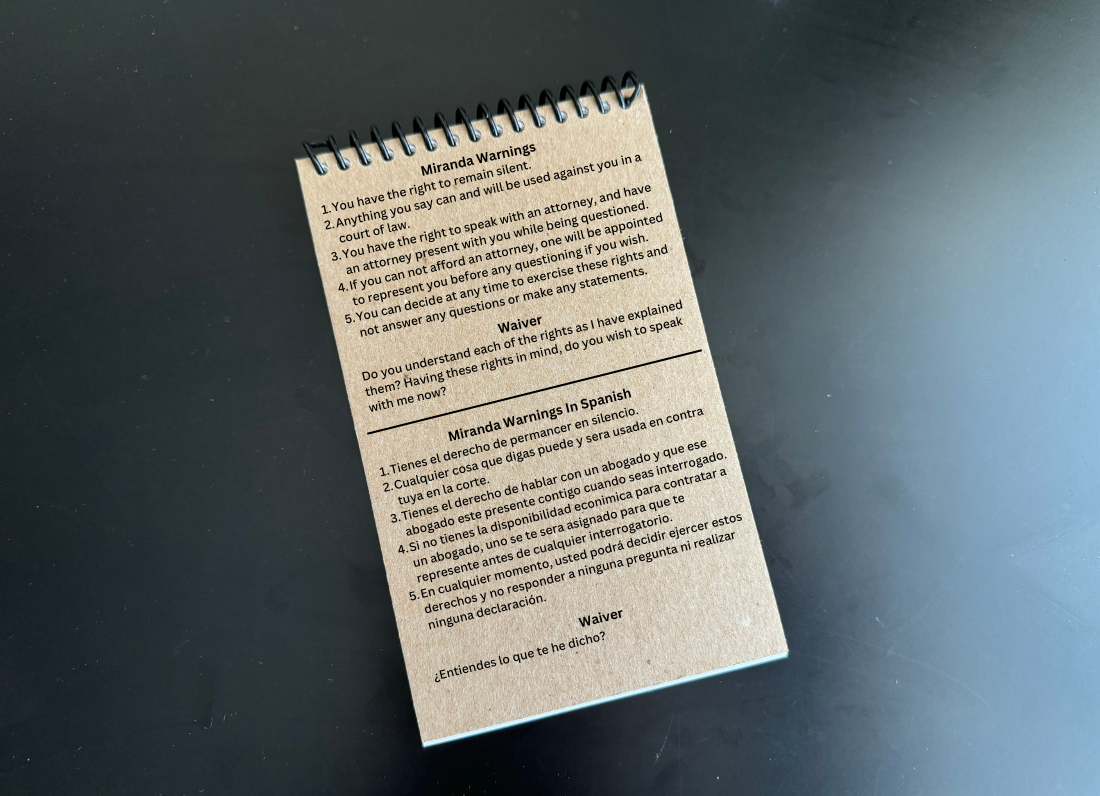 Miranda Warnings
1.You have the right to remain silent.
2.Anything you say can and will be used against you in a
court of law.
3.You have the right to speak with an attorney, and have
an attorney present with you while being questioned.
4.If you can not afford an attorney, one will be appointed
to represent you before any questioning if you wish.
5.You can decide at any time to exercise these rights and
not answer any questions or make any statements.
Waiver
Do you understand each of the rights as I have explained
them? Having these rights in mind, do you wish to speak
with me now?
Miranda Warnings In Spanish
1.Tienes el derecho de permancer en silencio.
2.Cualquier cosa que digas puede y sera usada en contra
tuya en la corte.
3.Tienes el derecho de hablar con un abogado y que ese
abogado este presente contigo cuando seas interrogado.
4.Si no tienes la disponibilidad econimica para contratar a
un abogado, uno se te sera asignado para que te
represente antes de cualquier interrogatorio.
5.En cualquier momento, usted podrá decidir ejercer estos
derechos y no responder a ninguna pregunta ni realizar
ninguna declaración.
Waiver
¿Entiendes lo que te he dicho?